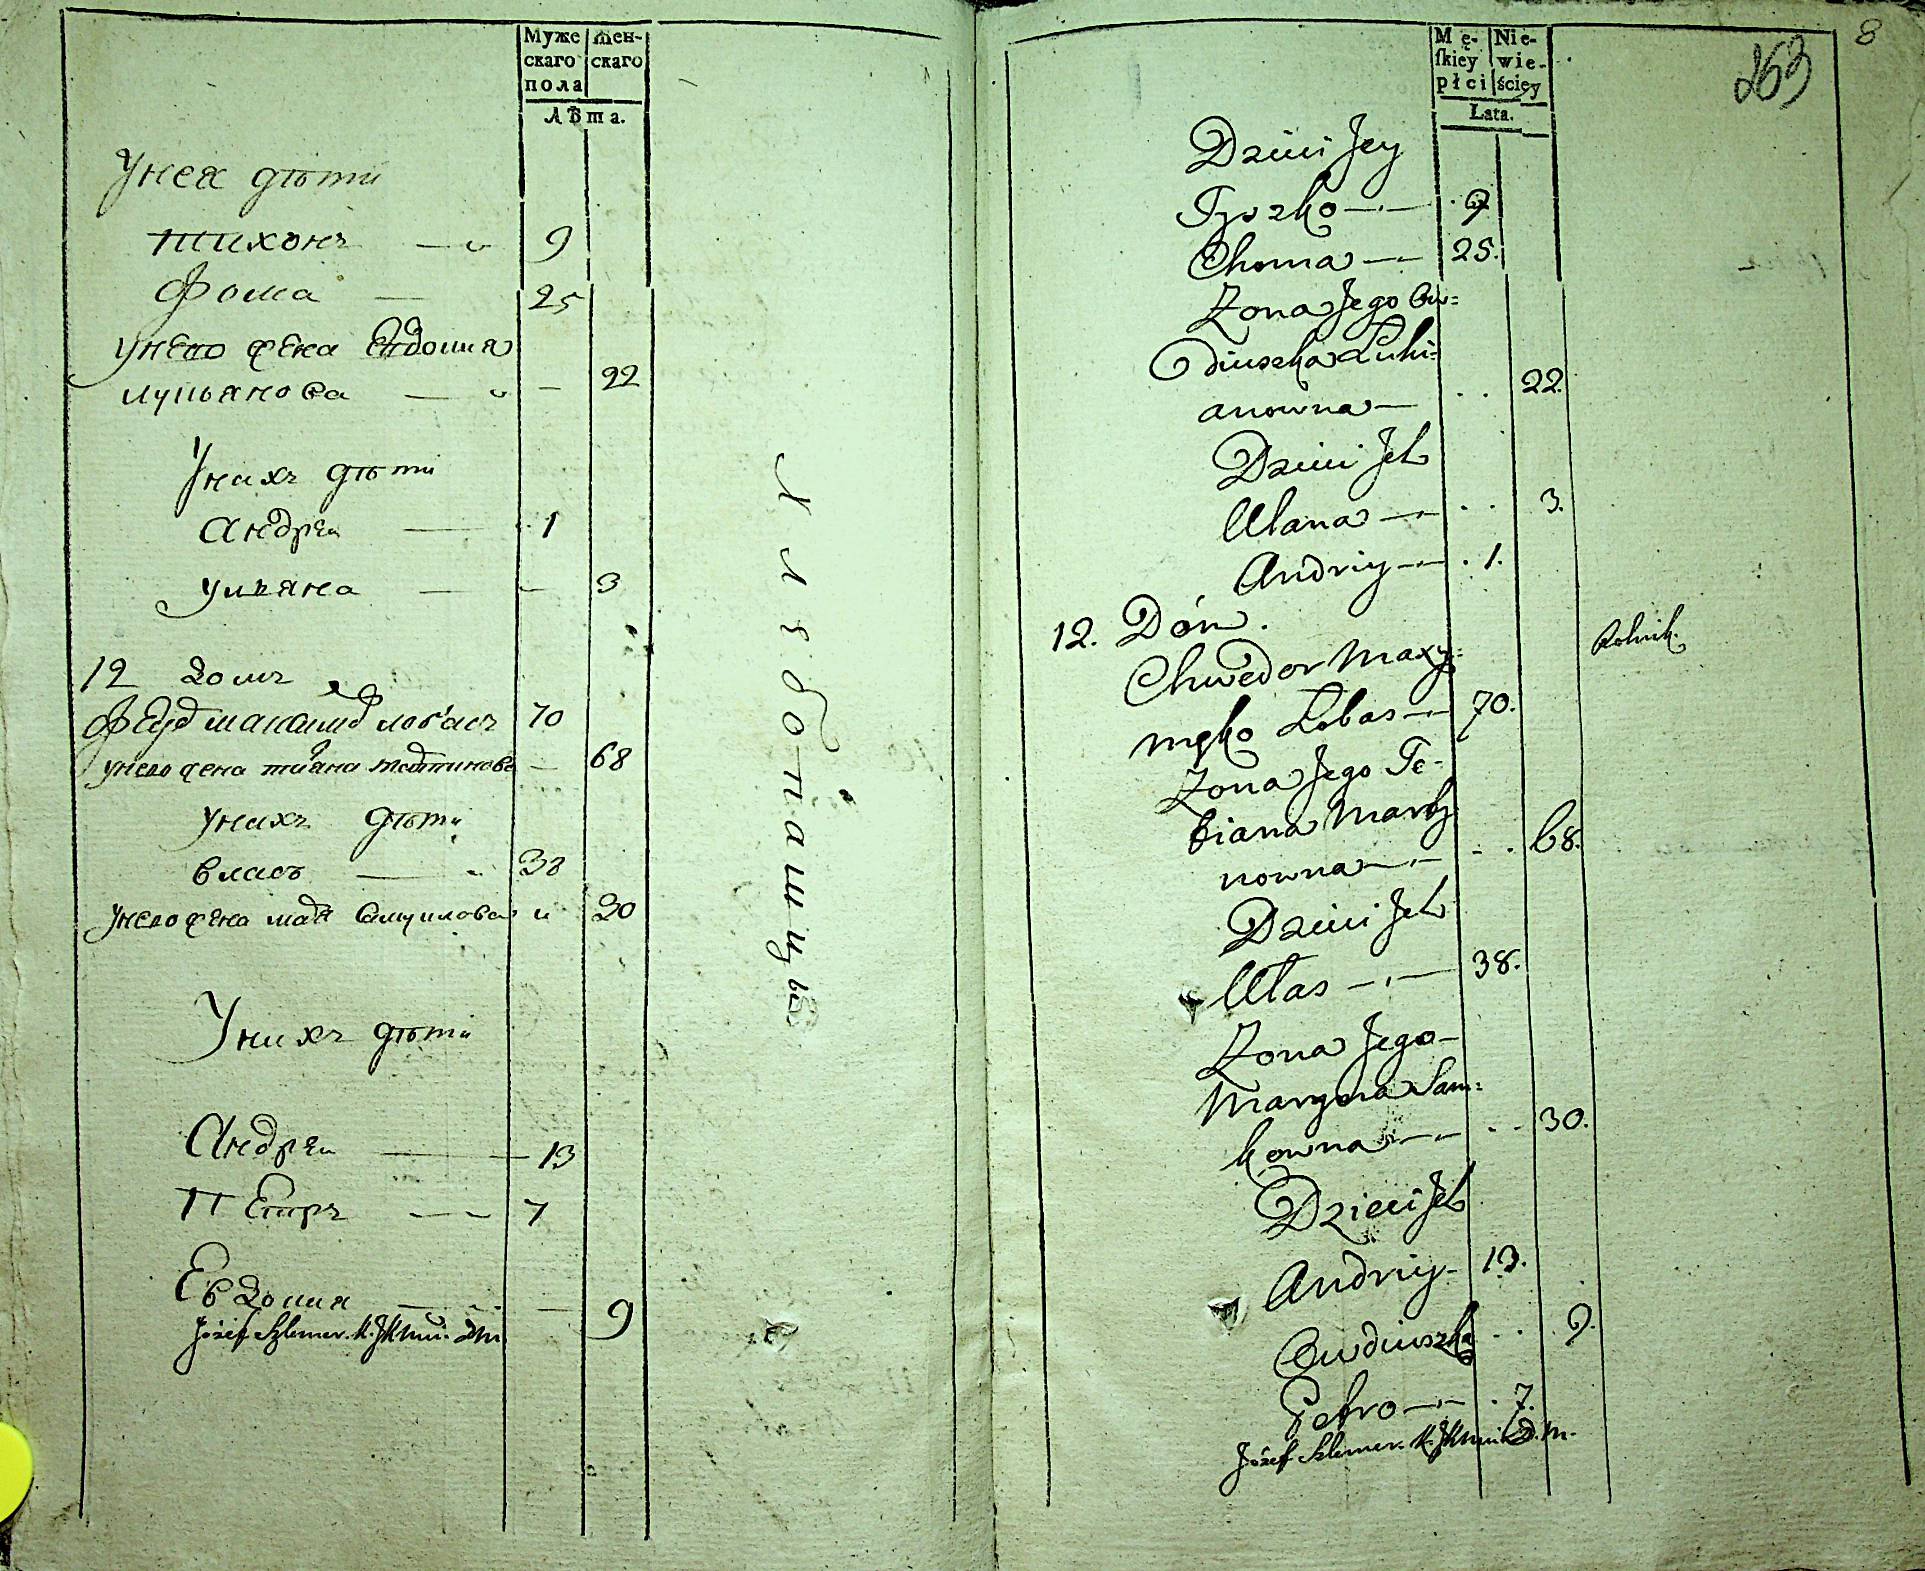 Муже
скаго
пола
Жен-
скаго
Лѣта.
У нея дѣти
Тихонъ 9
Фома 25
У него жена Евдокия
Лукьянова 22
У нихъ дѣти
Андрей 1
Ульяна 3
12 домъ
Федор Максимов Лобасъ 70
У него жена Татьяна Мартинова 68
У нихъ дѣти
Власъ 38
У него жена Самуилова 30
У нихъ дѣти
Андрей 13
Петръ 7
Евдокия 9
Józef Szlemer
Хлебопашцы
8
263
Mę-
skiey
płci
Nie-
wie-
ściey
Lata.
Dzieci Jey
Tyszko 9
Choma 25.
Żona Jego Ow=
diuszka Luki=
anowna 22.
Dzieci Ich
Ulana 3.
Andriy 1.
12. Dóm.
Chwedor Maxy=
męko Łobas 70. Rolnik.
Żona Jego Te-
tiana Marty
nowna 68.
Dzieci Ich
Ułas 38.
Żona Jego
Maryna Sam=
kowna 30.
Dzieci Ich
Andriy 13.
Owdiuszka 9.
Petro 7.
Józef Szlemer